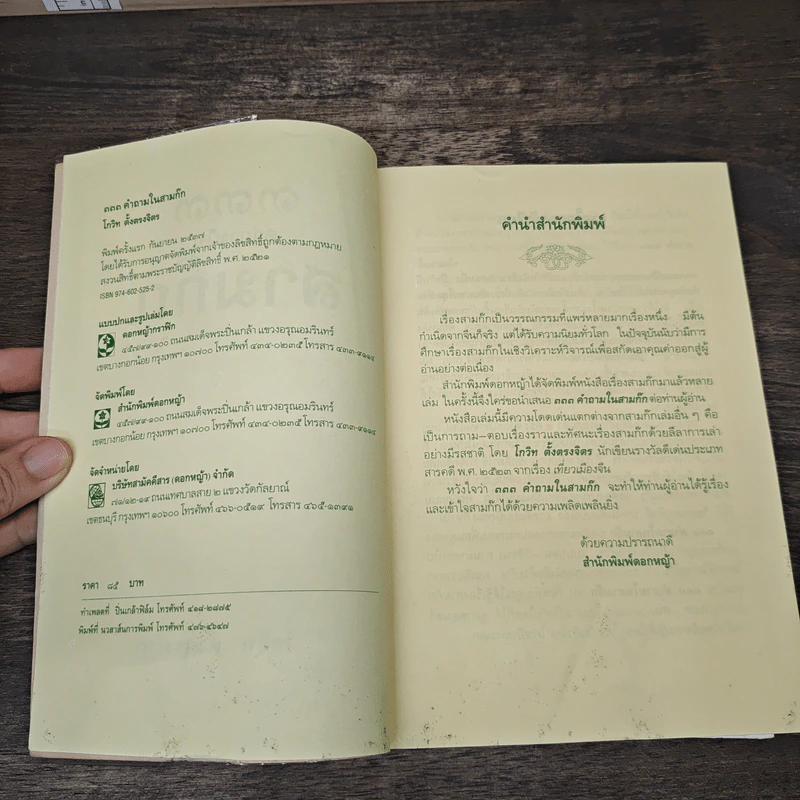 ๓๓๓ คำถามในสามก๊ก
โกวิท ตั้งตรงจิตร
พิมพ์ครั้งแรก กันยายน ๒๕๓๗
โดยได้รับการอนุญาตจัดพิมพ์จากเจ้าของลิขสิทธิ์ถูกต้องตามกฎหมาย
สงวนสิทธิ์ตามพระราชบัญญัติลิขสิทธิ์ พ.ศ. ๒๕๒๑
ISBN 974-602-525-2
แบบปกและรูปเล่มโดย
ดอกหญ้ากราฟิก
๔๕๗/๙๙-๑๐๐ ถนนสมเด็จพระปิ่นเกล้า แขวงอรุณอมรินทร์
เขตบางกอกน้อย กรุงเทพฯ ๑๐๗๐๐ โทรศัพท์ ๔๓๔-๐๒๓๕ โทรสาร ๔๓๓-๙๑๑๔
จัดพิมพ์โดย
สำนักพิมพ์ดอกหญ้า
๔๕๗/๙๙-๑๐๐ ถนนสมเด็จพระปิ่นเกล้า แขวงอรุณอมรินทร์
เขตบางกอกน้อย กรุงเทพฯ ๑๐๗๐๐ โทรศัพท์ ๔๓๔-๐๒๓๕ โทรสาร ๔๓๓-๙๑๑๔
จัดจำหน่ายโดย
บริษัทสามัคคีสาร (ดอกหญ้า) จำกัด
๗๑/๑๒-๑๔ ถนนเทศบาลสาย ๒ แขวงวัดกัลยาณ์
เขตธนบุรี กรุงเทพฯ ๑๐๖๐๐ โทรศัพท์ ๔๖๖-๐๕๑๙ โทรสาร ๔๖๕-๑๓๙๑
ราคา ๘๕ บาท
ทำเพลตที่ ปิ่นเกล้าฟิล์ม โทรศัพท์ ๔๑๘-๒๘๗๕
พิมพ์ที่ นวสาส์นการพิมพ์ โทรศัพท์ ๔๗๖-๔๖๔๗
คำนำสำนักพิมพ์
เรื่องสามก๊กเป็นวรรณกรรมที่แพร่หลายมากเรื่องหนึ่ง มีต้น
กำเนิดจากจีนก็จริง แต่ได้รับความนิยมทั่วโลก ในปัจจุบันนับว่ามีการ
ศึกษาเรื่องสามก๊กในเชิงวิเคราะห์วิจารณ์เพื่อสกัดเอาคุณค่าออกสู่ผู้
อ่านอย่างต่อเนื่อง
สำนักพิมพ์ดอกหญ้าได้จัดพิมพ์หนังสือเรื่องสามก๊กมาแล้วหลาย
เล่ม ในครั้งนี้จึงใคร่ขอนำเสนอ ๓๓๓ คำถามในสามก๊ก ต่อท่านผู้อ่าน
หนังสือเล่มนี้มีความโดดเด่นแตกต่างจากสามก๊กเล่มอื่น ๆ คือ
เป็นการถาม–ตอบเรื่องราวและทัศนะเรื่องสามก๊กด้วยลีลาการเล่า
อย่างมีรสชาติ โดย โกวิท ตั้งตรงจิตร นักเขียนรางวัลดีเด่นประเภท
สารคดี พ.ศ. ๒๕๒๓ จากเรื่อง เที่ยวเมืองจีน
หวังใจว่า ๓๓๓ คำถามในสามก๊ก จะทำให้ท่านผู้อ่านได้รู้เรื่อง
และเข้าใจสามก๊กได้ด้วยความเพลิดเพลินยิ่ง
ด้วยความปรารถนาดี
สำนักพิมพ์ดอกหญ้า